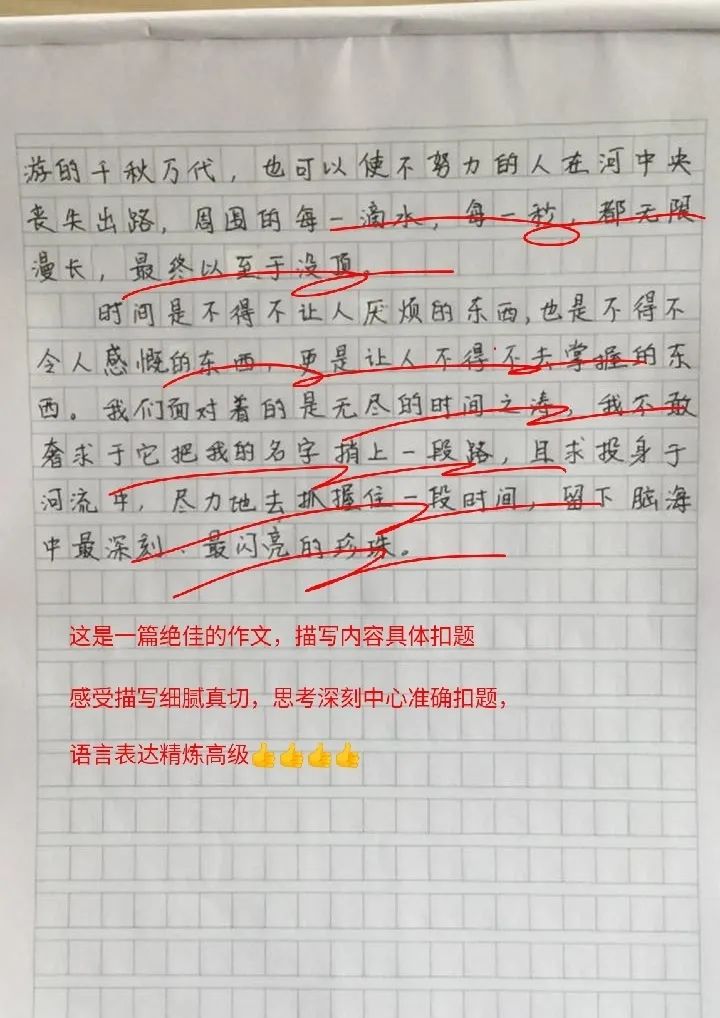 游的千秋万代，也可以使不努力的人在河中央
丧失出路，周围的每一滴水，每一秒，都无限
漫长，最终以至于没顶。
时间是不得不让人厌烦的东西,也是不得不
令人感慨的东西，更是让人不得不去掌握的东
西。我们面对着的是无尽的时间之涛，我不敢
奢求于它把我的名字捎上一段路，且求投身于
河流中，尽力地去抓握住一段时间，留下脑海
中最深刻、最闪亮的珍珠。
这是一篇绝佳的作文，描写内容具体扣题
感受描写细腻真切，思考深刻中心准确扣题，
语言表达精炼高级👍👍👍👍